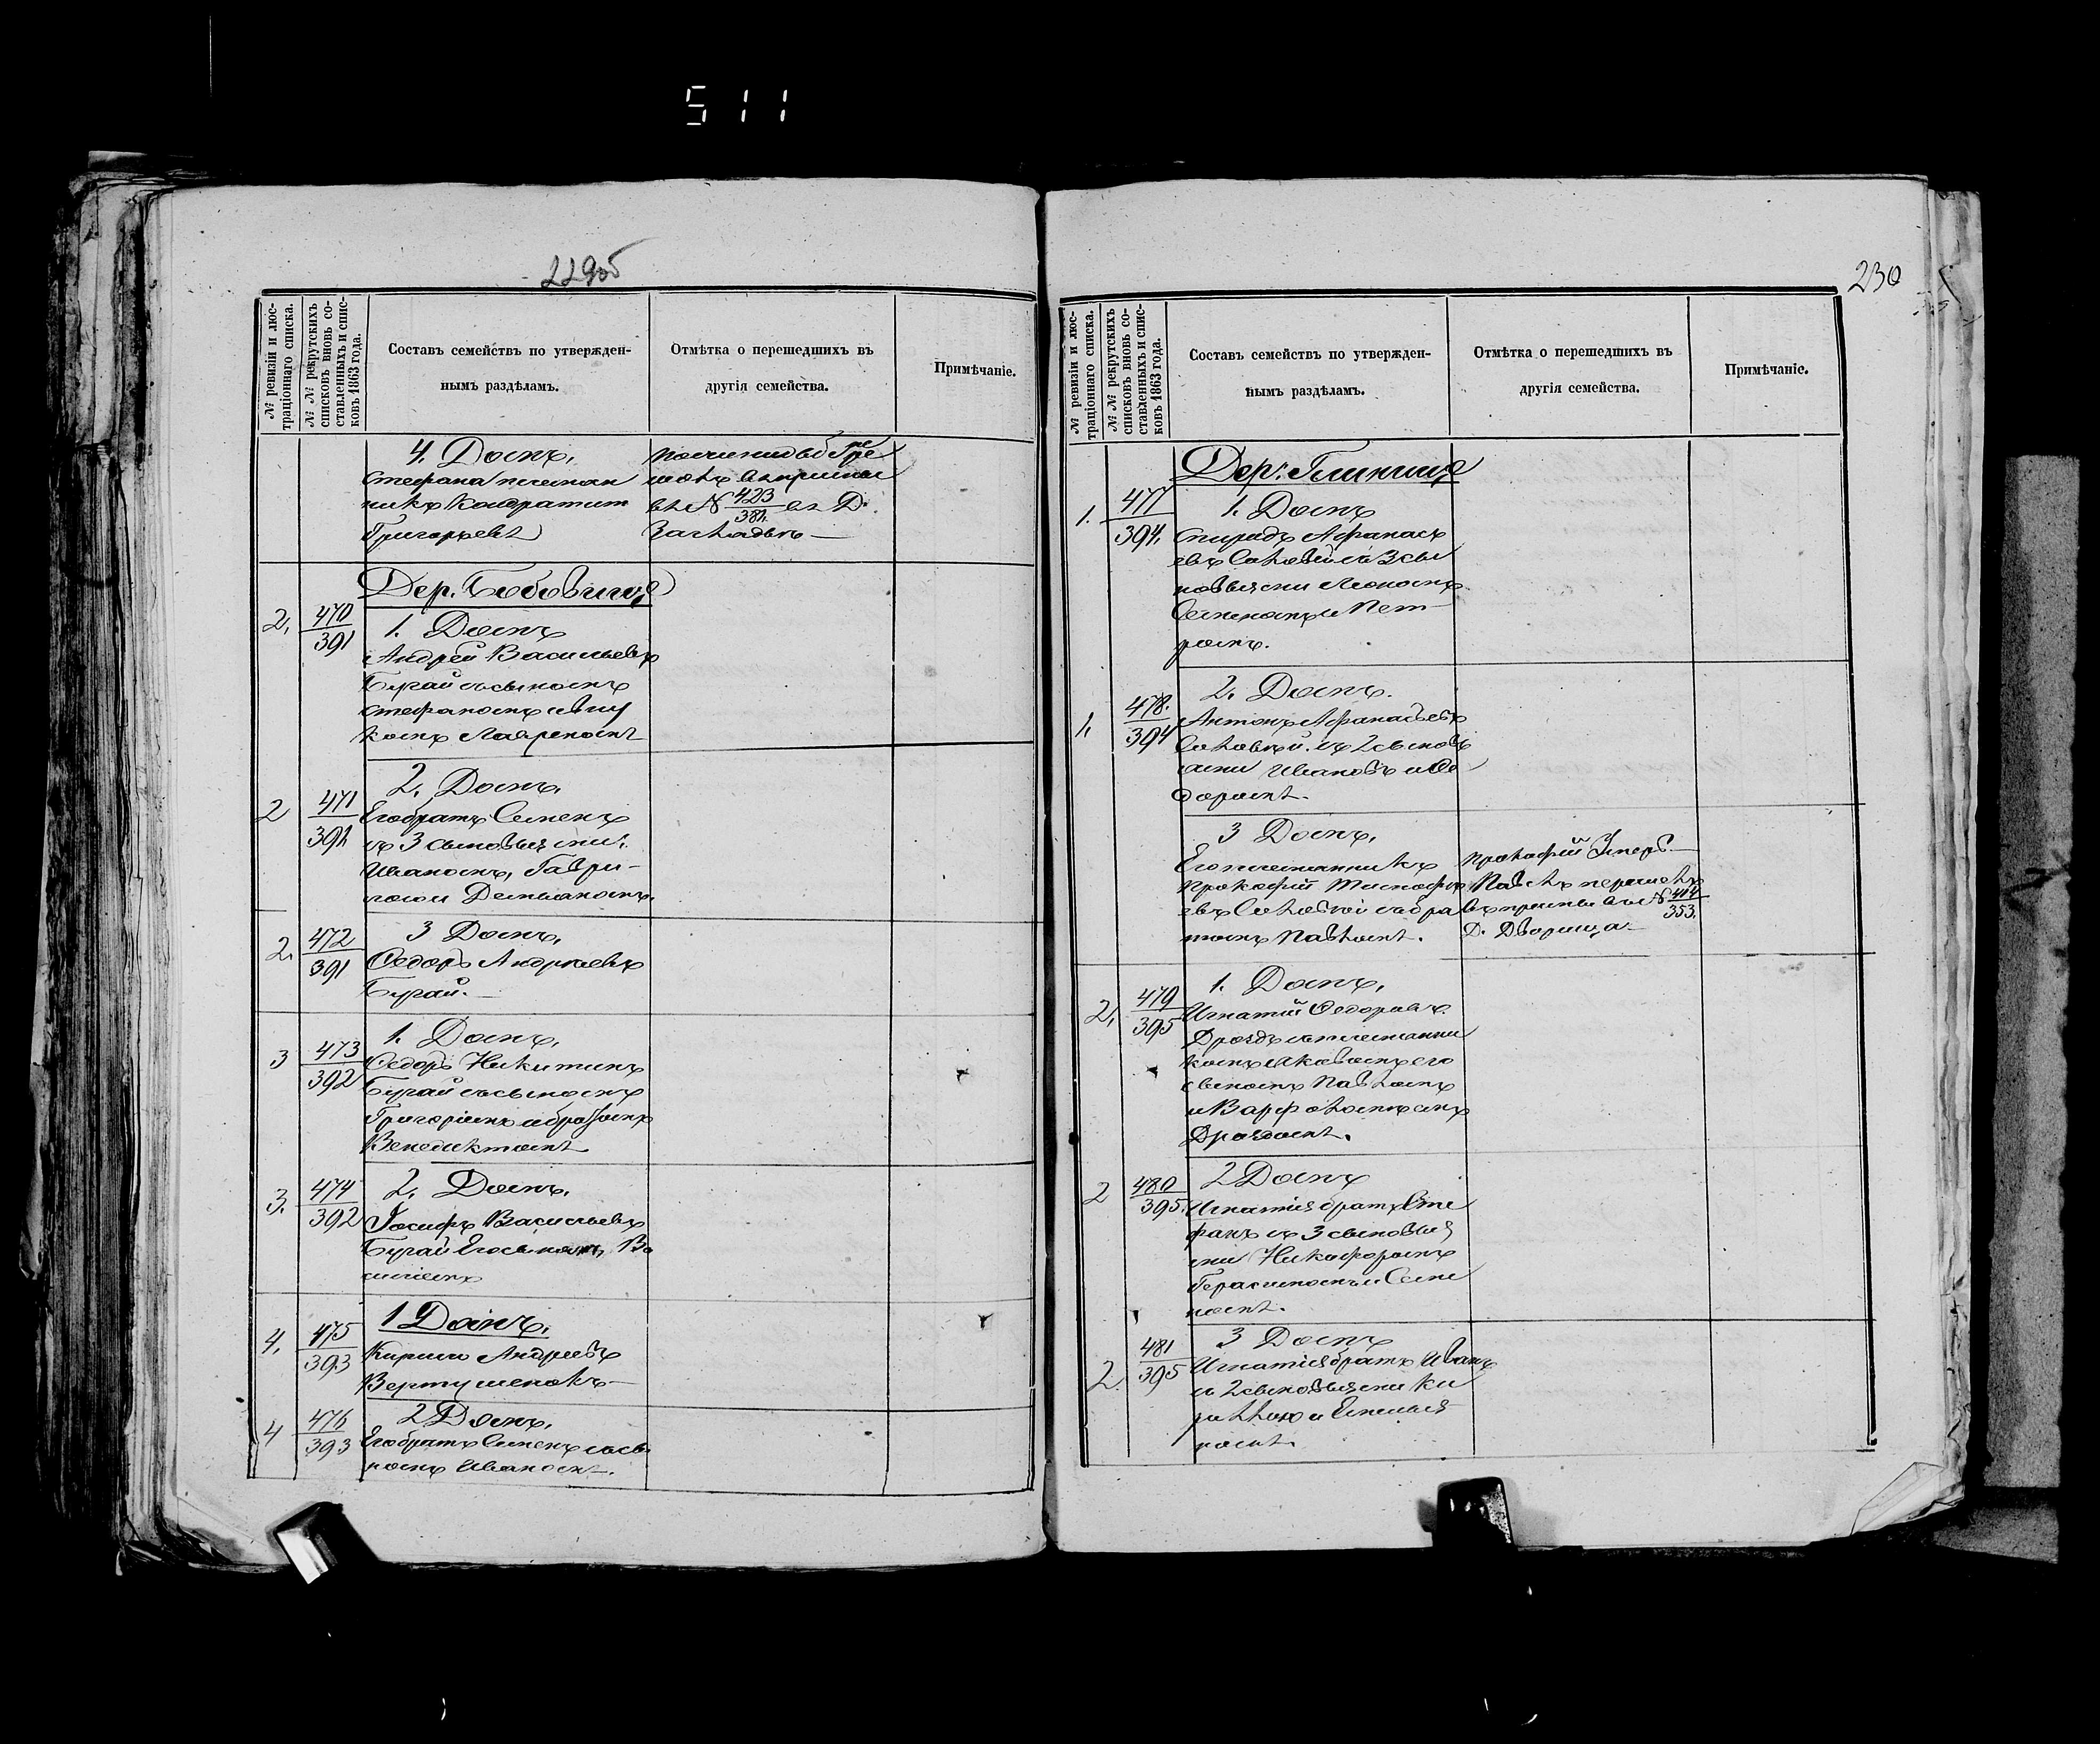 511
229об
№ ревизіи и люс-
траціоннаго списка.
№ № рекрутскихъ
списковъ вновь со-
ставленныхъ и спис-
ковъ 1863 года.
Составъ семействъ по утвержден-
нымъ раздѣламъ.
Отмѣтка о перешедшихъ въ
другія семейства.
Примѣчаніе.
4. Домъ.
Стефана племян
никъ Кондратій
Григорьевъ
въ № 423/381 въ Д.
Дер. Бобовище
2. 470/391
1. Домъ
Андрей Васильевъ
Бугай съ сыномъ
Стефаномъ и вну
комъ Лавреномъ
2 471/391
2. Домъ.
Его братъ Семенъ
съ 3 сыновьями:
Иваномъ, Гаври-
ломъ и Демьяномъ.
2. 472/391
3 Домъ.
Ѳедоръ Андреевъ
Бугай.
3 473/392
1. Домъ.
Ѳедоръ Никитинъ
Бугай съ сыномъ
Григоріемъ и братомъ
Венедиктомъ
3. 474/392
2. Домъ.
Іосифъ Васильевъ
Бугай Его сыномъ, Ва
силіемъ
4. 475/393
1 Домъ.
Кирило Андреевъ
Вертушенокъ
4 476/393
2 Домъ.
Его братъ Семенъ съ сы
номъ Иваномъ.
230
№ ревизіи и люс-
траціоннаго списка.
№ № рекрутскихъ
списковъ вновь со-
ставленныхъ и спис-
ковъ 1863 года.
Составъ семействъ по утвержден-
нымъ раздѣламъ.
Отмѣтка о перешедшихъ въ
другія семейства.
Примѣчаніе.
Дер. Глинище
1. 477/394.
1. Домъ
Спиридъ Афанась
евъ Соловей съ 3 сы
новьями
Семеномъ и Пет-
ромъ.
1. 478./394
2. Домъ.
Антонъ Афанасьевъ
Соловей. съ 2 сыновь
ями Иваномъ и Ѳе
доромъ.
3 Домъ.
Его племянникъ
Прокофій Тимофе
евъ Соловей съ бра
томъ Павломъ.
Прокофій Умеръ
Павелъ перешелъ
въ № 414/353.
Д. Дворища
2, 479/395
1. Домъ.
Игнатій Ѳедоровъ
Дроздъ съ племянни
комъ Яковомъ его
сыномъ Павломъ
и Варфоломеемъ
Дроздомъ.
2 480/395.
2 Домъ
Игнатія братъ Сте
фанъ съ 3 сыновья
ми Никифоромъ
Герасимомъ и Семе
номъ.
2. 481/395
3 Домъ
Игнатія братъ Иванъ
съ 2 сыновьями Ки
рилломъ и Емелья
номъ.